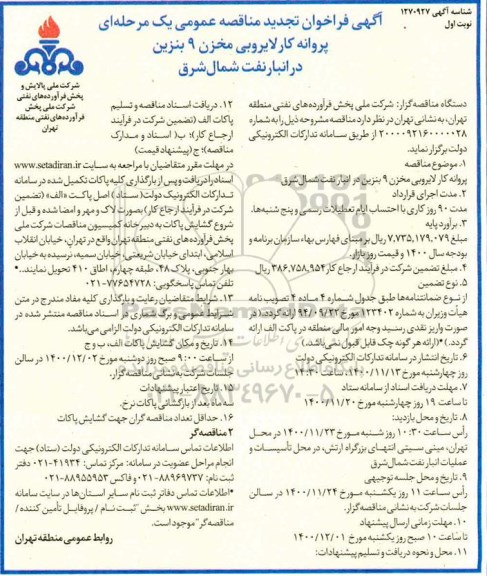 شناسه آگهی ۱۲۷۰۹۲۷
نوبت اول
آگهی فراخوان تجدید مناقصه عمومی یک مرحله‌ای
پروانه کار لایروبی مخزن ۹ بنزین
در انبار نفت شمال شرق
شرکت ملی پالایش و
پخش فرآورده‌های نفتی
شرکت ملی پخش
فرآورده‌های نفتی منطقه
تهران
دستگاه مناقصه‌گزار: شرکت ملی پخش فرآورده‌های نفتی منطقه
تهران، به نشانی تهران در نظر دارد مناقصه مشروحه ذیل را به شماره
۲۰۰۰۰۹۲۱۶۰۰۰۰۲۸ از طریق سامانه تدارکات الکترونیکی
دولت برگزار نماید.
۱. موضوع مناقصه
پروانه کار لایروبی مخزن ۹ بنزین در انبار نفت شمال شرق
۲. مدت اجرای قرارداد
مدت ۹۰ روز کاری با احتساب ایام تعطیلات رسمی و پنج شنبه‌ها.
۳. برآورد پایه
مبلغ ۷,۷۳۵,۱۷۹,۰۷۹ ریال بر مبنای فهارس بهاء سازمان برنامه و
بودجه سال ۱۴۰۰ و قیمت روز بازار.
۴. مبلغ تضمین شرکت در فرآیند ارجاع کار ۳۸۶,۷۵۸,۹۵۴ ریال
۵. نوع تضمین
از نوع ضمانتنامه‌ها طبق جدول شماره ۴ ماده ۴ تصویب نامه
هیأت وزیران به شماره ۱۲۳۴۰۲ مورخ ۹۴/۰۹/۲۲ ارائه گردد. (در
صورت واریز نقدی رسید وجه امور مالی منطقه در پاکت الف ارائه
گردد.) *(ارائه هر گونه چک قابل قبول نمی‌باشد.)
۶. تاریخ انتشار در سامانه تدارکات الکترونیکی دولت
روز چهارشنبه مورخ ۱۴۰۰/۱۱/۱۳ ساعت ۱۴:۳۰
۷. مهلت دریافت اسناد از سامانه ستاد
تا ساعت ۱۹ روز چهارشنبه مورخ ۱۴۰۰/۱۱/۲۰
۸. تاریخ و محل بازدید:
رأس ساعت ۱۰:۳۰ روز شنبه مورخ ۱۴۰۰/۱۱/۲۳ در محل
تهران، مینی سیتی انتهای بزرگراه ارتش، در محل تأسیسات و
عملیات انبار نفت شمال شرق
۹. تاریخ و محل جلسه توجیهی
رأس ساعت ۱۱ روز یکشنبه مورخ ۱۴۰۰/۱۱/۲۴ در سالن
جلسات شرکت به نشانی مناقصه‌گزار.
۱۰. مهلت زمانی ارسال پیشنهاد
تا ساعت ۱۰ صبح روز یکشنبه مورخ ۱۴۰۰/۱۲/۰۱
۱۱. محل و نحوه دریافت و تسلیم پیشنهادات:
۱۲. دریافت اسناد مناقصه و تسلیم
پاکات الف (تضمین شرکت در فرآیند
ارجاع کار)؛ ب (اسناد و مدارک
مناقصه)؛ ج (پیشنهاد قیمت)
در مهلت مقرر متقاضیان با مراجعه به سایت www.setadiran.ir
اسناد را دریافت و پس از بارگذاری کلیه پاکات تکمیل شده در سامانه
تدارکات الکترونیک دولت (ستاد) اصل پاکت «الف» (تضمین
شرکت در فرآیند ارجاع کار) بصورت لاک و مهر و امضا شده و قبل از
شروع گشایش پاکات به دبیرخانه کمیسیون مناقصات شرکت ملی
پخش فرآورده‌های نفتی منطقه تهران واقع در تهران، خیابان انقلاب
اسلامی، ابتدای خیابان شریعتی، خیابان سمیه، نرسیده به خیابان
بهار جنوبی، پلاک ۴۸، طبقه چهارم، اطاق ۴۱۰ تحویل نمایند. *
تلفن تماس پاسخگویی: ۷۷۶۵۴۷۲۸-۰۲۱
۱۳. شرایط متقاضیان رعایت و بارگذاری کلیه مفاد مندرج در متن
شرایط عمومی و برگ شماری در اسناد مناقصه منتشر شده در
سامانه تدارکات الکترونیکی دولت الزامی می‌باشد.
۱۴. تاریخ و مکان گشایش پاکات الف، ب و ج
از ساعت ۹:۰۰ صبح روز دوشنبه مورخ ۱۴۰۰/۱۲/۰۲ در سالن
جلسات شرکت به نشانی مناقصه‌گزار.
۱۵. تاریخ اعتبار پیشنهادات
سه ماه بعد از بازگشائی پاکات نرخ.
۱۶. حداقل تعداد مناقصه گران جهت گشایش پاکات
۲ مناقصه‌گر
اطلاعات تماس سامانه تدارکات الکترونیکی دولت (ستاد) جهت
انجام مراحل عضویت در سامانه: مرکز تماس: ۴۱۹۳۴-۰۲۱ دفتر
ثبت نام: ۸۸۹۶۹۷۳۷-۰۲۱ و فاکس ۸۸۹۵۵۹۵۳-۰۲۱
*اطلاعات تماس دفاتر ثبت نام سایر استان‌ها در سایت سامانه
www.setadiran.ir بخش "ثبت نام / پروفایل تأمین کننده /
مناقصه‌گر" موجود است.
روابط عمومی منطقه تهران